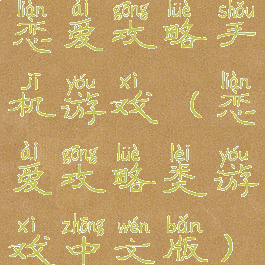 liàn ài gōng lüè shǒu
恋爱攻略手
jī yóu xì liàn
机游戏（恋
ài gōng lüè lèi yóu
爱攻略类游
xì zhōng wén bǎn
戏中文版）